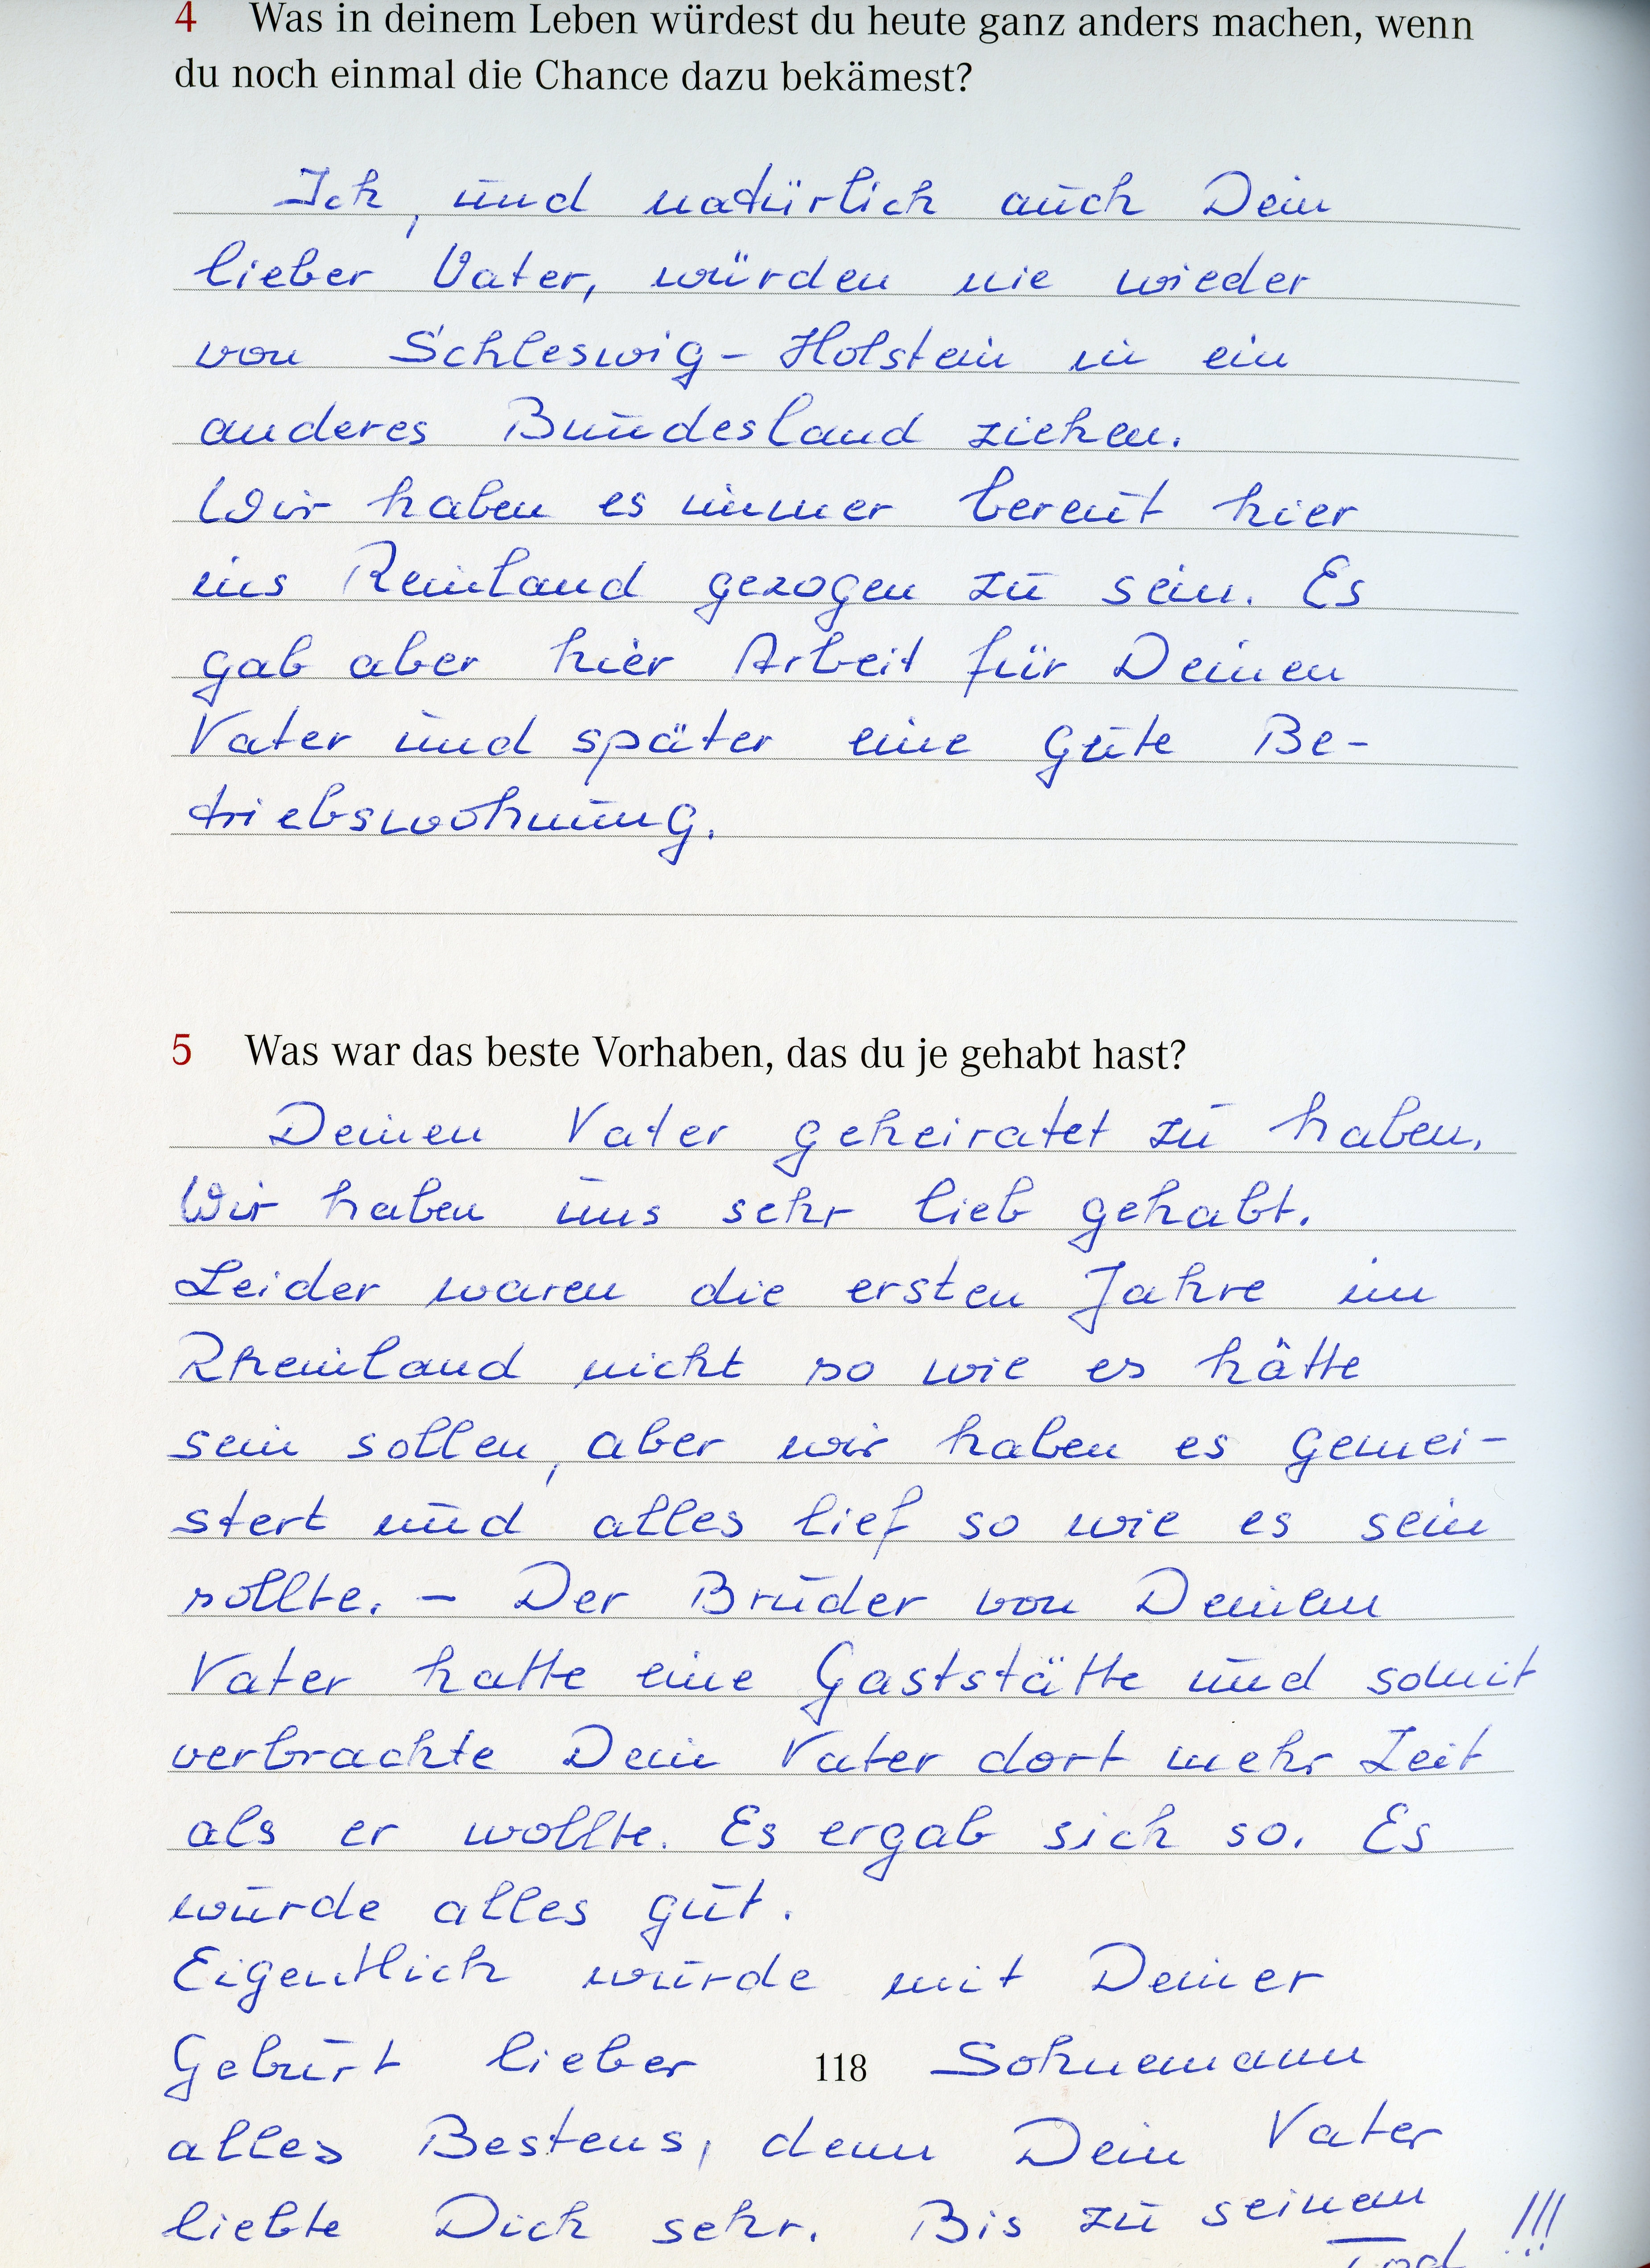 4 Was in deinem Leben würdest du heute ganz anders machen, wenn
du noch einmal die Chance dazu bekämest?
Ich, und natürlich auch Dein
lieber Vater, würden nie wieder
von Schleswig-Holstein in ein
anderes Bundesland ziehen.
Wir haben es immer bereut hier
ins Reinland gezogen zu sein. Es
gab aber hier Arbeit für Deinen
Vater und später eine gute Be-
triebswohnung.
5 Was war das beste Vorhaben, das du je gehabt hast?
Deinen Vater geheiratet zu haben.
Wir haben uns sehr lieb gehabt.
Leider waren die ersten Jahre im
Rheinland nicht so wie es hätte
sein sollen, aber wir haben es gemei-
stert und alles lief so wie es sein
sollte. – Der Bruder von Deinem
Vater hatte eine Gaststätte und somit
verbrachte Dein Vater dort mehr Zeit
als er wollte. Es ergab sich so. Es
wurde alles gut.
Eigentlich wurde mit Deiner
Geburt lieber Sohnemann
118
alles Bestens, denn Dein Vater
liebte Dich sehr. Bis zu seinem
Tod!!!